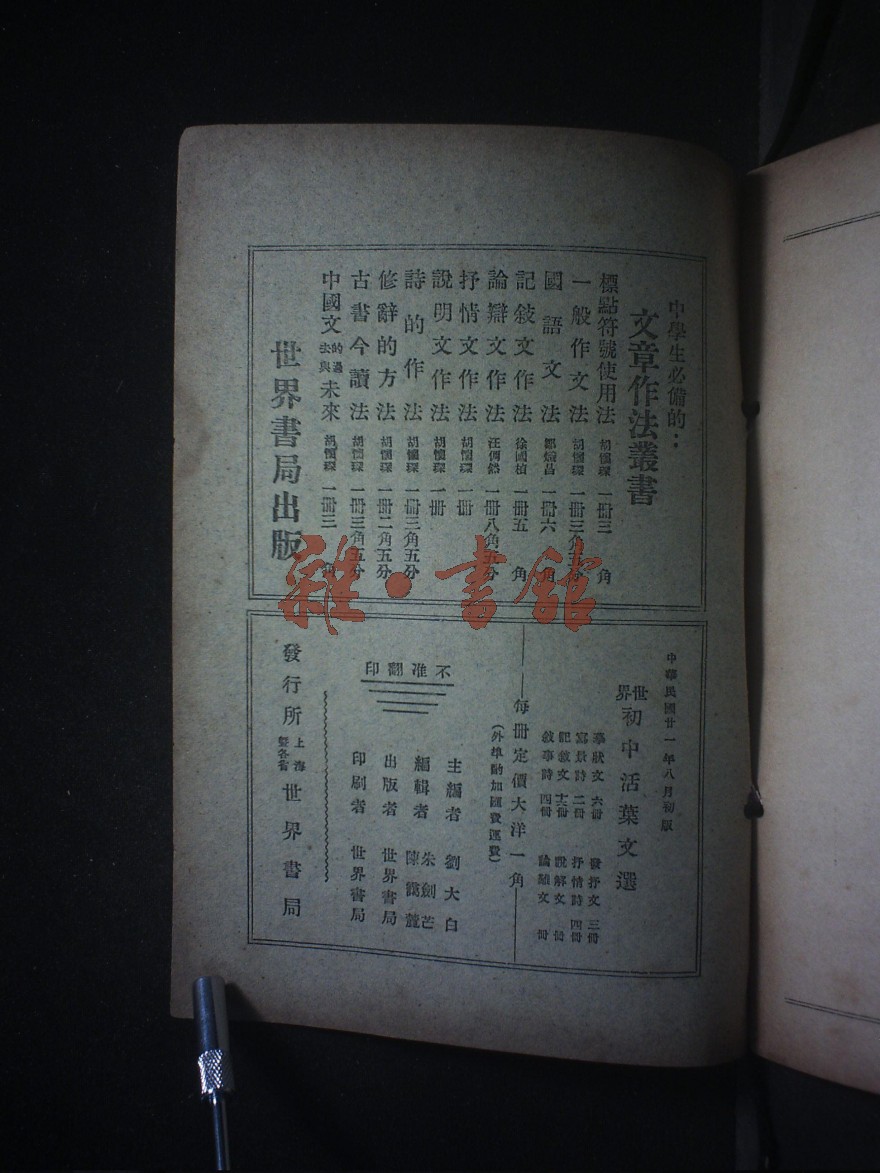 中學生必備的：
文章作法叢書
標點符號使用法 胡懷琛 一冊三角
一般作文法 胡懷琛 一冊三角五分
國語文法 鄒熾昌 一冊六角
記敍文作法 徐國楨 一冊五角
論辯文作法 汪倜然 一冊八角五分
抒情文作法 胡懷琛 一冊
說明文作法 胡懷琛 一冊
詩的作法 胡懷琛 一冊三角五分
修辭的方法 胡懷琛 一冊二角五分
古書今讀法 胡懷琛 一冊三角五分
中國文的過去與未來 胡懷琛 一冊三角
世界書局出版
中華民國廿一年八月初版
世界初中活葉文選
摹狀文 六冊 發抒文 三冊
寫景詩 二冊 抒情詩 四冊
記敘文 十一冊 說解文 冊
敘事詩 四冊 論難文 冊
每冊定價大洋一角
(外埠酌加匯費運費)
不准翻印
主編者 劉大白
編輯者 朱劍芒 陳靄麓
出版者 世界書局
印刷者 世界書局
發行所 上海暨各省 世界書局
雜·書館